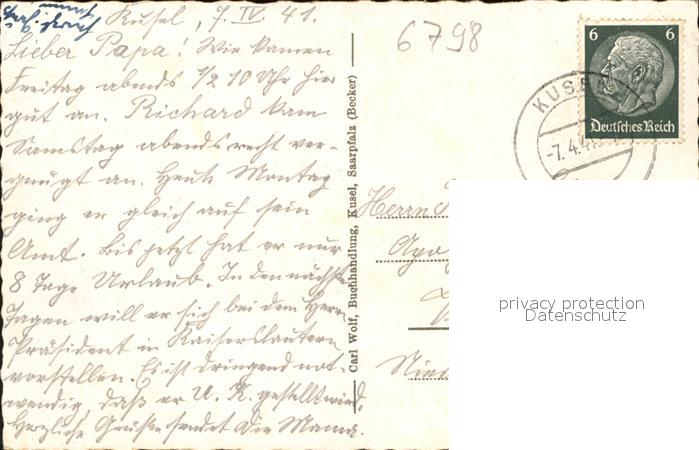 Kusel, 7. IV. 41.
Lieber Papa! Wir kamen
Freitag abends 1/2 10 Uhr hier
gut an. Richard kam
Samstag abends recht ver-
gnügt an. Heute Montag
ging er gleich auf sein
Amt. Bis jetzt hat er nur
8 Tage Urlaub. In den nächsten
Tagen will er sich bei dem Herrn
Präsident in Kaiserslautern
vorstellen. Es ist dringend not-
wendig, daß er U. K. gestellt wird.
Herzliche Grüße sendet Die Mama.
Carl Wolf, Buchhandlung, Kusel, Saarpfalz (Becker)
6798
6 6
Deutsches Reich
KUSEL
-7.4.41
Herrn
Apo
Nied
privacy protection
Datenschutz